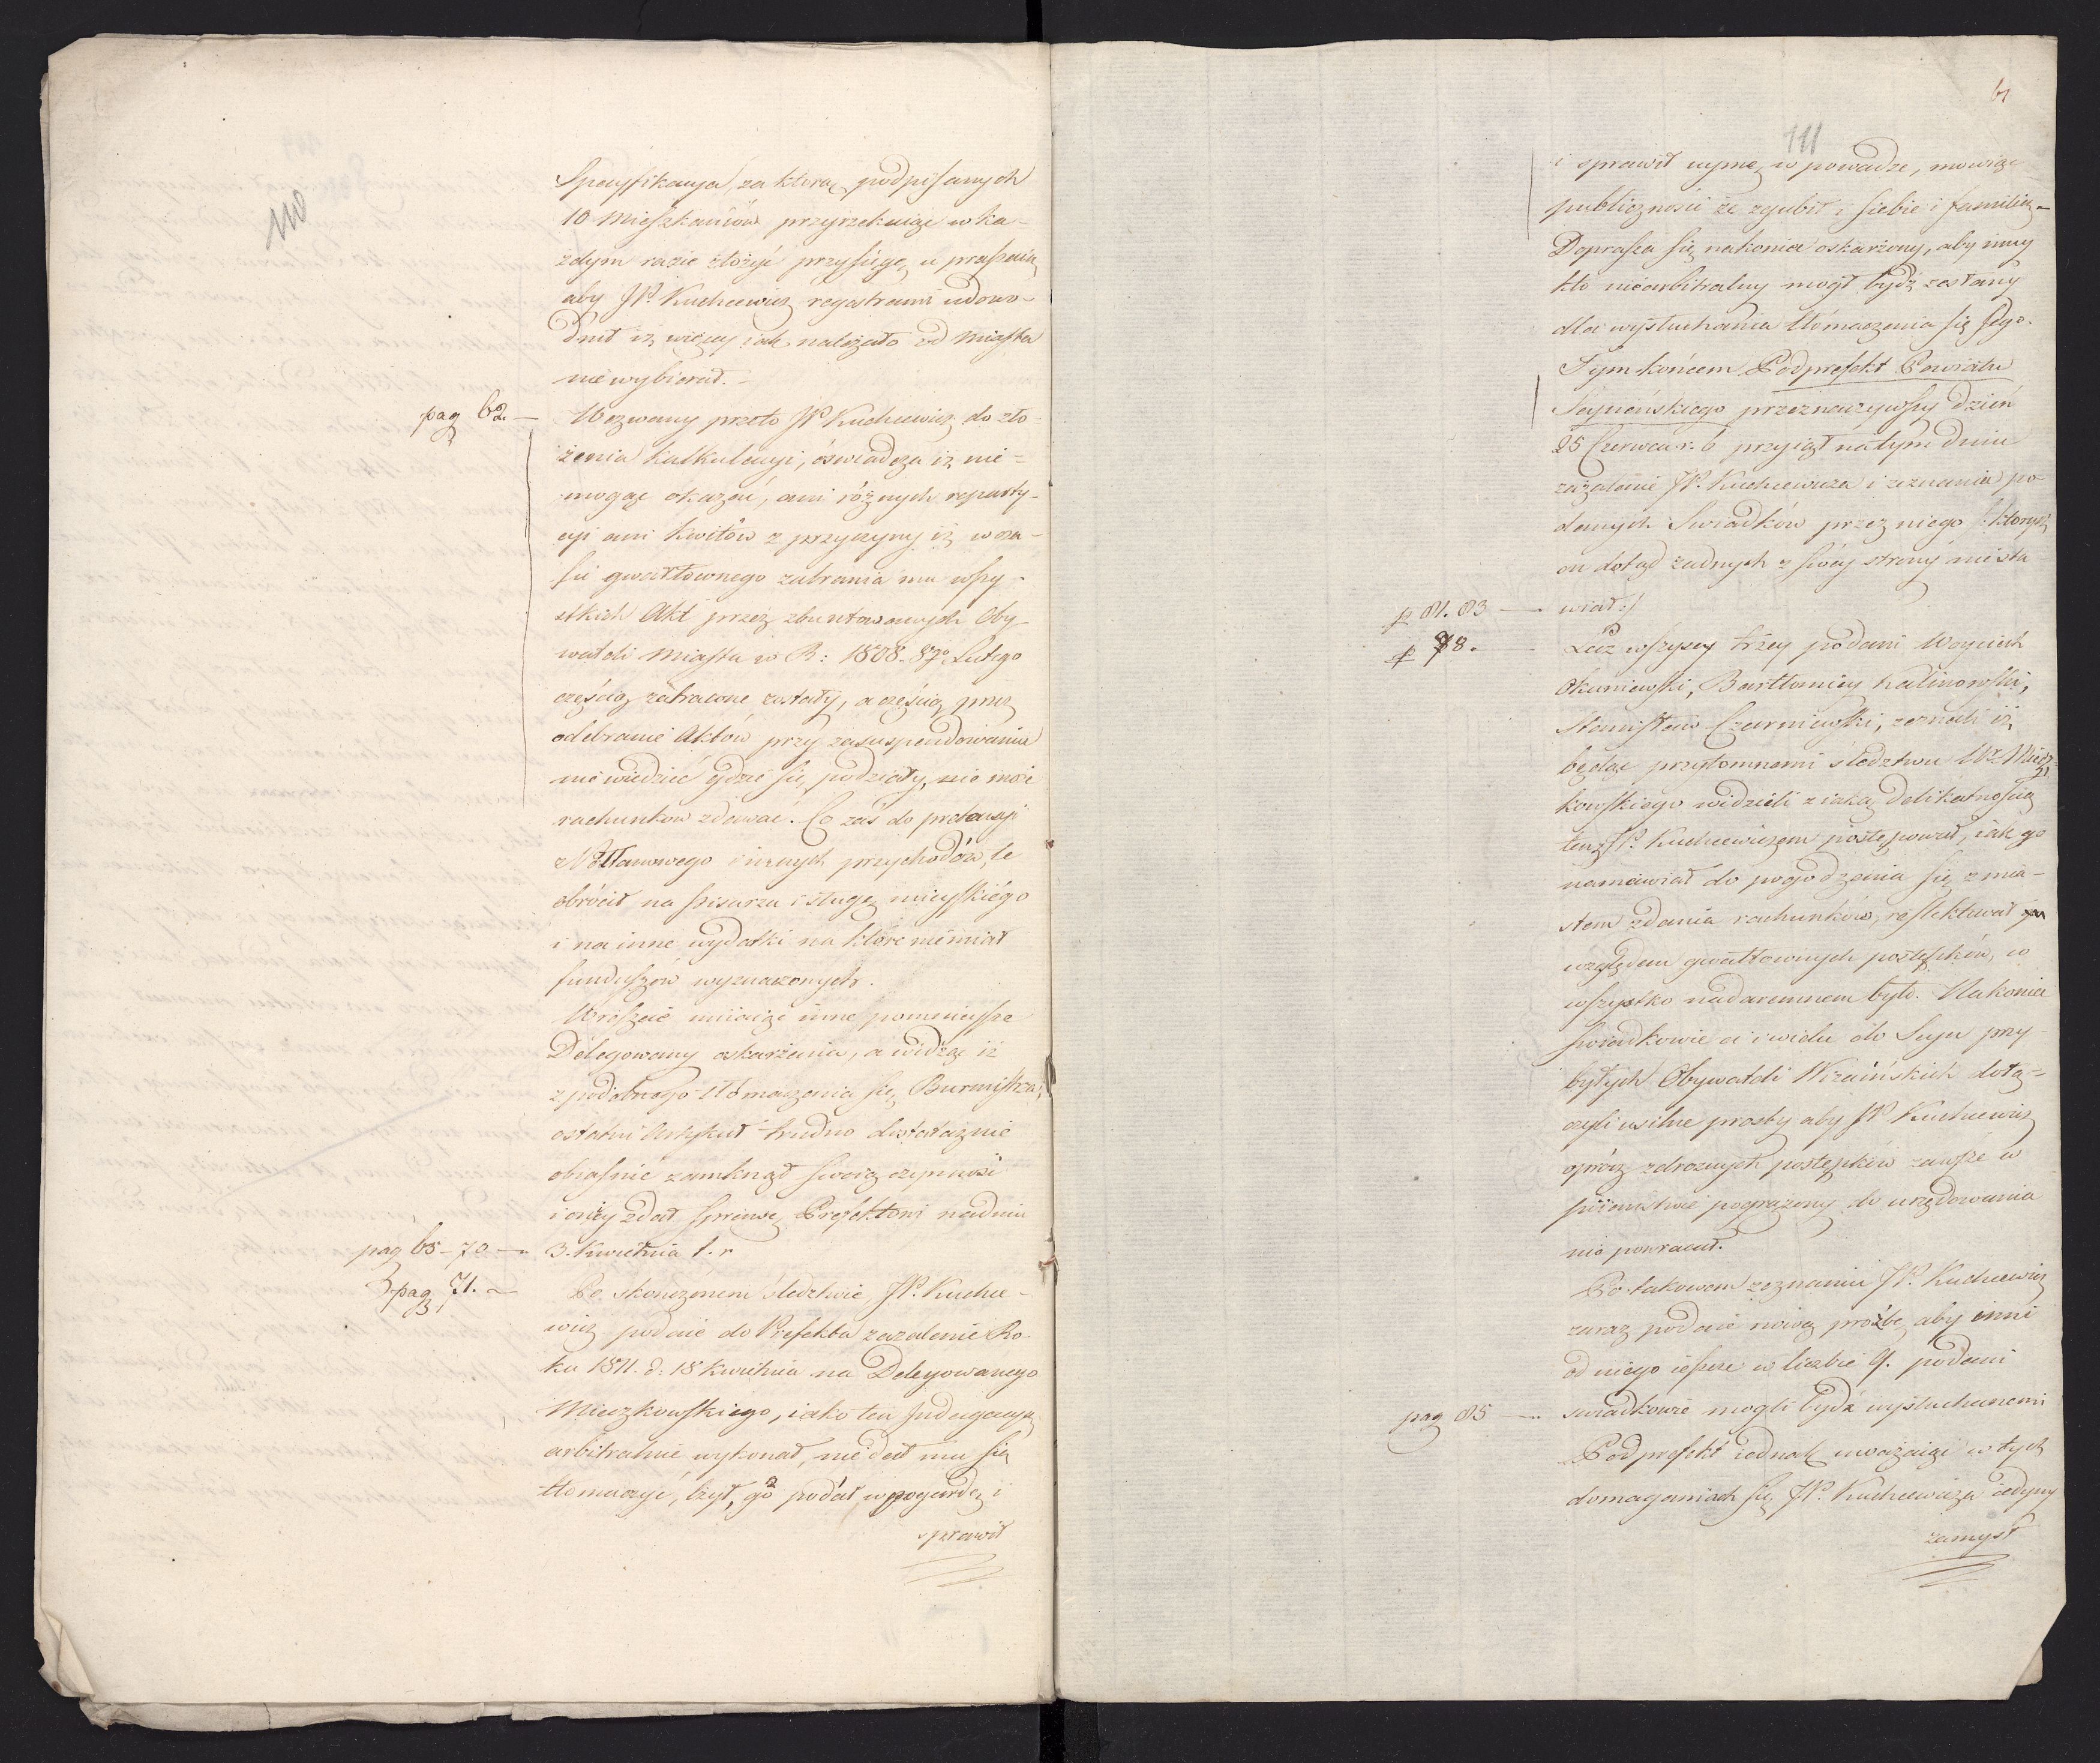 110
Specyfikacya, za którą podpisanych
10 Mieszkańców przyrzekaiąc w ka-
żdym razie złożyć przysięgę, upraszaią
aby JP. Kucheewicz regestrami udowo-
dnił iż więcey iak należało od Miasta
nie wybierał. –
pag 62. — Wezwany przeto JP Kucheewicz do zło-
żenia kalkulacyi, oświadcza iż nie-
mogąc okazać, ani różnych reparty-
cyi ani kwitów z przyczyny iż w cza-
sie gwałtownego zabrania mu wszy-
stkich Akt przez zbuntowanych Oby-
wateli Miasta w R: 1808. 8go Lutego
częścią zatracone zostały, a częścią przez
odebranie Aktów przy zasuspendowaniu
nie wiedzieć gdzie się podziały, nie może
rachunkow zdawać. Co zaś do pretensyi
i innych przychodów, te
obrócił na pisarza i sługę mieyskiego
i na inne wydatki na które niemiał
funduszów wyznaczonych.
Wreszcie miiaiąc inne pomnieysze
Delegowany oskarżenia, a widząc iż
z podobnego tłomaczenia się Burmistrza,
ostatni Artykuł trudno dostatecznie
obiaśnić zamknął swoią czynność
i oney zdał sprawę Prefektowi na dniu
pag 65–70 — 3. Kwietnia t. r
pag 71. — Po skończonem śledztwie, JP. Kuchee-
wicz podaie do Prefekta zażalenie Ro-
ku 1811. d: 18 Kwietnia na Delegowanego
Mieczkowskiego, iako ten Indagacyą
arbitralnie wykonał, nie dał mu się
tłomaczyć, lżył, go podał w pogardę i
sprawił
61
111
i sprawił uymę w powadze, mowiąc
publiczności że zgubił i siebie i familią –
Doprasza się nakoniec oskarżony, aby inny
kto niearbitralny mógł bydź zesłany
dla wysłuchania tłómaczenia się Jego.
Tym końcem Podprefekt Powiatu
Seyneńskiego przeznaczywszy dzień
25 Czerwca r. b przyiął na tym dniu
zażalenie JP. Kucheewicza i zeznania po-
danych Swiadków przez niego /: których
on dotąd żadnych z swéy strony niesta
p 81. 83 — wiał :/
p 78. — Lecz wszyscy trzey podani Woyciech
Okuniewski, Bartłomiey Kalinowski,
Stanisław Czarniewski, zeznali iż
będąc przytomnemi śledztwu Wo Miecz-
kowskiego widzieli z iaką delikatnością
ten z JP. Kucheewiczem postępował, iak go
namawiał do pogodzenia się z mia-
stem zdania rachunków, reflektował
względem gwałtownych postępków, w
wszystko nadaremnem było. Nakoniec
swiadkowie ci i wielu do Seyn przy-
byłych Obywateli Wizaińskich dołą-
czyli usilne prosby aby JP. Kucheewicz
oprócz zdrożnych postępków zawsze w
piianstwie pogrążony do urzędowania
nie powracał.
Po takowem zeznaniu JP. Kucheewicz
zaraz podaie nową prożbę aby inni
od niego ieszcze w liczbie 9. podani
pag 85 — swiadkowie mogli bydź wysłuchanemi
Podprefekt iednak uważaiąc w tych
domaganiach się JP. Kucheewicza iedyny
zamysł